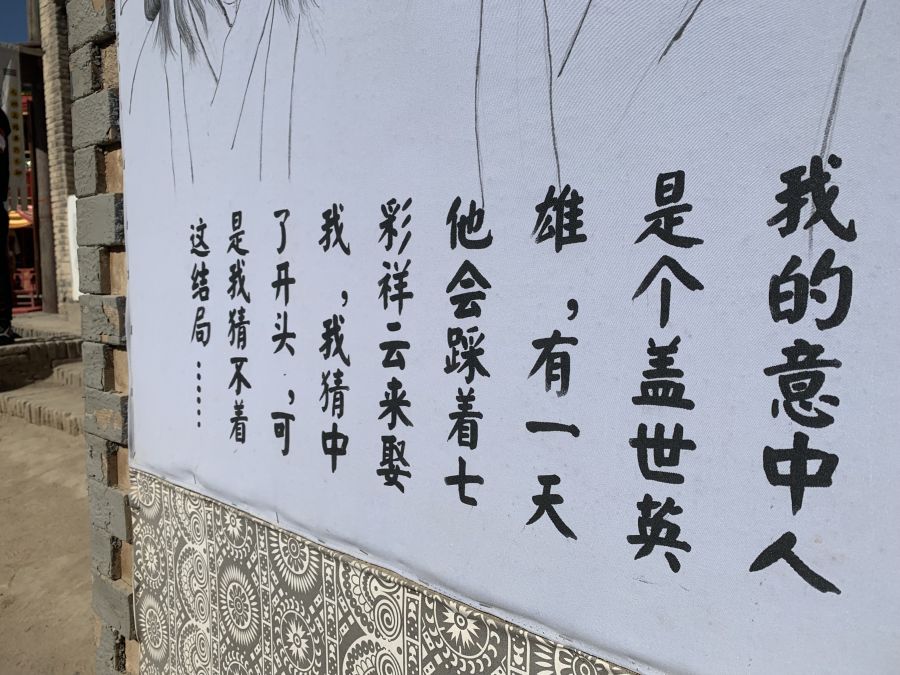 我的意中人
是个盖世英
雄，有一天
他会踩着七
彩祥云来娶
我，我猜中
了开头，可
是我猜不着
这结局……